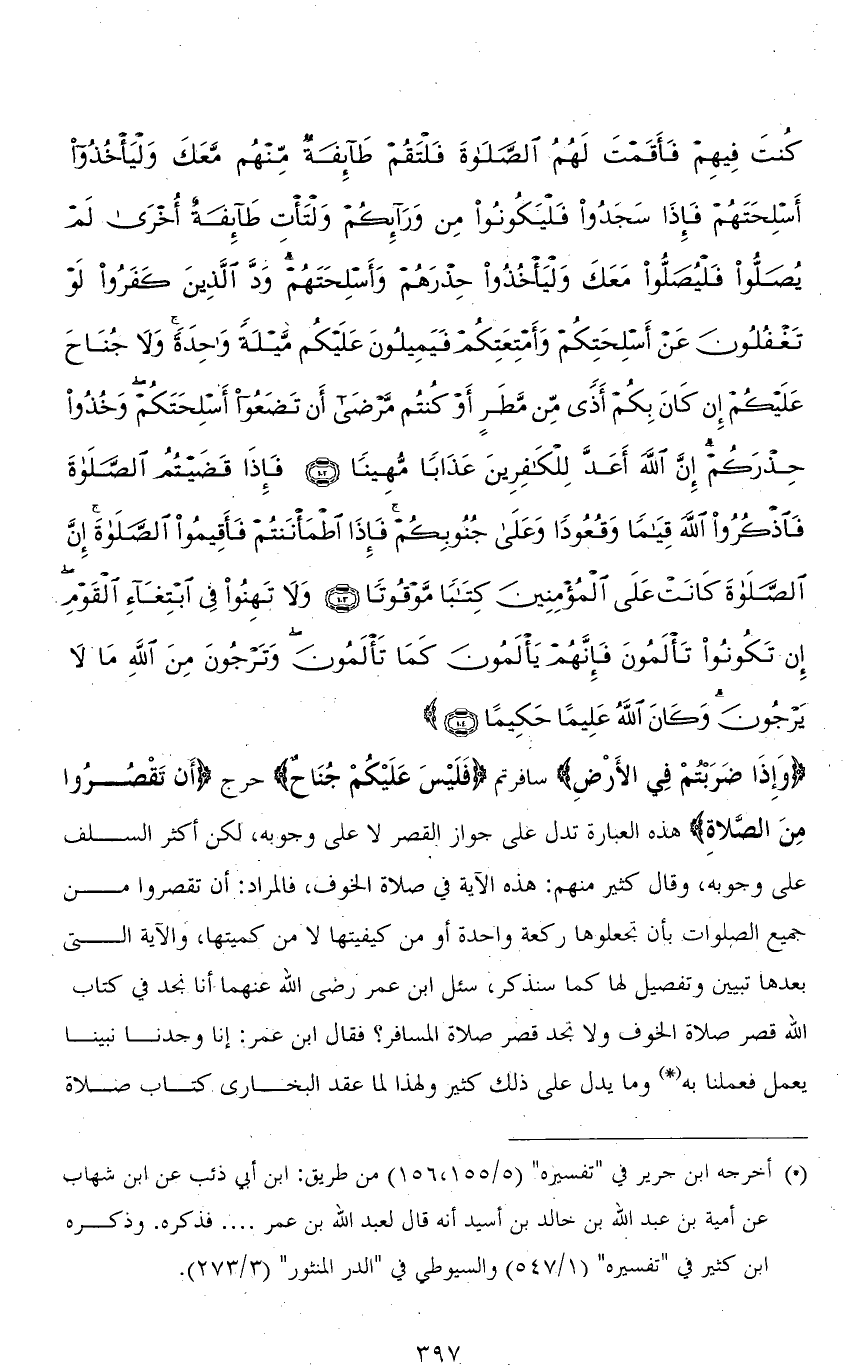 كُنتَ فِيهِمْ فَأَقَمْتَ لَهُمُ ٱلصَّلَوٰةَ فَلْتَقُمْ طَآئِفَةٌ مِّنْهُم مَّعَكَ وَلْيَأْخُذُوٓا۟
أَسْلِحَتَهُمْ فَإِذَا سَجَدُوا۟ فَلْيَكُونُوا۟ مِن وَرَآئِكُمْ وَلْتَأْتِ طَآئِفَةٌ أُخْرَىٰ لَمْ
يُصَلُّوا۟ فَلْيُصَلُّوا۟ مَعَكَ وَلْيَأْخُذُوا۟ حِذْرَهُمْ وَأَسْلِحَتَهُمْ ۗ وَدَّ ٱلَّذِينَ كَفَرُوا۟ لَوْ
تَغْفُلُونَ عَنْ أَسْلِحَتِكُمْ وَأَمْتِعَتِكُمْ فَيَمِيلُونَ عَلَيْكُم مَّيْلَةً وَٰحِدَةً ۚ وَلَا جُنَاحَ
عَلَيْكُمْ إِن كَانَ بِكُمْ أَذًى مِّن مَّطَرٍ أَوْ كُنتُم مَّرْضَىٰٓ أَن تَضَعُوٓا۟ أَسْلِحَتَكُمْ ۖ وَخُذُوا۟
حِذْرَكُمْ ۗ إِنَّ ٱللَّهَ أَعَدَّ لِلْكَٰفِرِينَ عَذَابًا مُّهِينًا ١٠٢ فَإِذَا قَضَيْتُمُ ٱلصَّلَوٰةَ
فَٱذْكُرُوا۟ ٱللَّهَ قِيَٰمًا وَقُعُودًا وَعَلَىٰ جُنُوبِكُمْ ۚ فَإِذَا ٱطْمَأْنَنتُمْ فَأَقِيمُوا۟ ٱلصَّلَوٰةَ ۚ إِنَّ
ٱلصَّلَوٰةَ كَانَتْ عَلَى ٱلْمُؤْمِنِينَ كِتَٰبًا مَّوْقُوتًا ١٠٣ وَلَا تَهِنُوا۟ فِى ٱبْتِغَآءِ ٱلْقَوْمِ ۖ
إِن تَكُونُوا۟ تَأْلَمُونَ فَإِنَّهُمْ يَأْلَمُونَ كَمَا تَأْلَمُونَ ۖ وَتَرْجُونَ مِنَ ٱللَّهِ مَا لَا
يَرْجُونَ ۗ وَكَانَ ٱللَّهُ عَلِيمًا حَكِيمًا ١٠٤ ﴾
﴿وَإِذَا ضَرَبْتُمْ فِي الأَرْضِ﴾ سافرتم ﴿فَلَيْسَ عَلَيْكُمْ جُنَاحٌ﴾ حرج ﴿أَن تَقْصُرُوا
مِنَ الصَّلاةِ﴾ هذه العبارة تدل على جواز القصر لا على وجوبه، لكن أكثر السلف
على وجوبه، وقال كثير منهم: هذه الآية في صلاة الخوف، فالمراد: أن تقصروا من
جميع الصلوات بأن تجعلوها ركعة واحدة أو من كيفيتها لا من كميتها، والآية التى
بعدها تبيين وتفصيل لها كما سنذكر، سئل ابن عمر رضى الله عنهما أنا نجد في كتاب
الله قصر صلاة الخوف ولا نجد قصر صلاة المسافر؟ فقال ابن عمر: إنا وجدنا نبينا
يعمل فعملنا به(*) وما يدل على ذلك كثير ولهذا لما عقد البخارى كتاب صلاة
(*) أخرجه ابن جرير في "تفسيره" (١٥٦،١٥٥/٥) من طريق: ابن أبي ذئب عن ابن شهاب
عن أمية بن عبد الله بن خالد بن أسيد أنه قال لعبد الله بن عمر .... فذكره. وذكره
ابن كثير في "تفسيره" (٥٤٧/١) والسيوطي في "الدر المنثور" (٢٧٣/٣).
٣٩٧